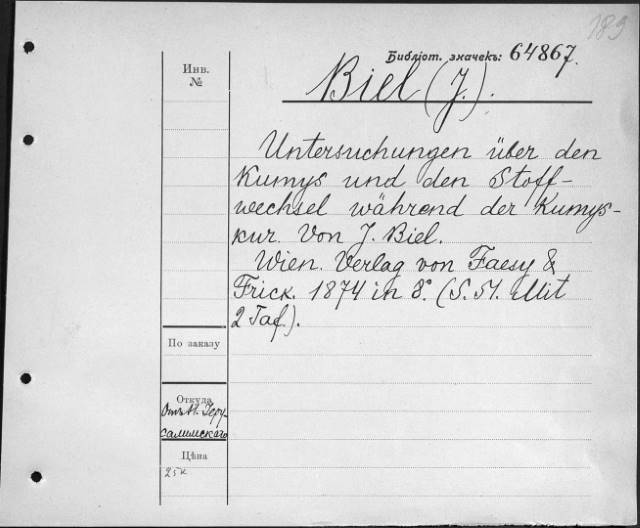 189
Библіот. значекъ: 64867.
Инв.
№
Biel (J.).
Untersuchungen über den
Kumys und den Stoff-
wechsel während der Kumys-
kur. Von J. Biel.
Wien. Verlag von Faesy &
Frick. 1874 in 8°. (S. 51. Mit
2 Taf.).
По заказу
Откуда
Отъ М. Іеру-
салимскаго
Цѣна
25к